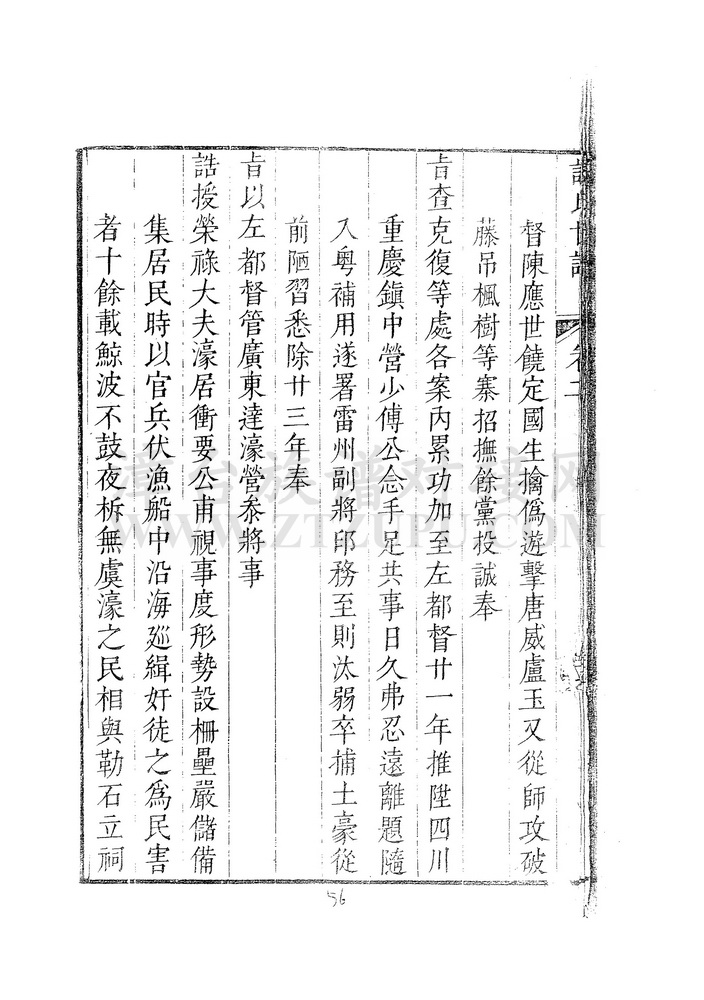 氏世譜 卷二
督陳應世饒定國生擒僞遊擊唐威盧玉又從師攻破
藤吊楓樹等寨招撫餘黨投誠奉
旨查克復等處各案內累功加至左都督廿一年推陞四川
重慶鎮中營少傅公念手足共事日久弗忍遠離題隨
入粵補用遂署雷州副將印務至則汰弱卒捕土豪從
前陋習悉除廿三年奉
旨以左都督管廣東達濠營叅將事
誥授榮祿大夫濠居衝要公甫視事度形勢設柵壘嚴儲備
集居民時以官兵伏漁船中沿海廵緝奸徒之爲民害
者十餘載鯨波不鼓夜柝無虞濠之民相與勒石立祠
56
WWW.ZTZUPU.COM